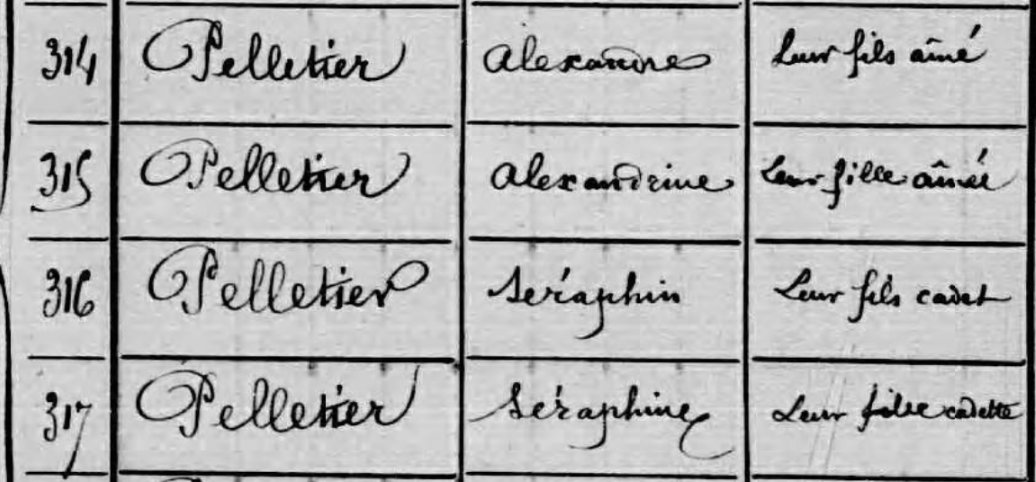 314 Pelletier Alexandre Leur fils aîné
315 Pelletier Alexandrine Leur fille aînée
316 Pelletier Séraphin Leur fils cadet
317 Pelletier Séraphine Leur fille cadette